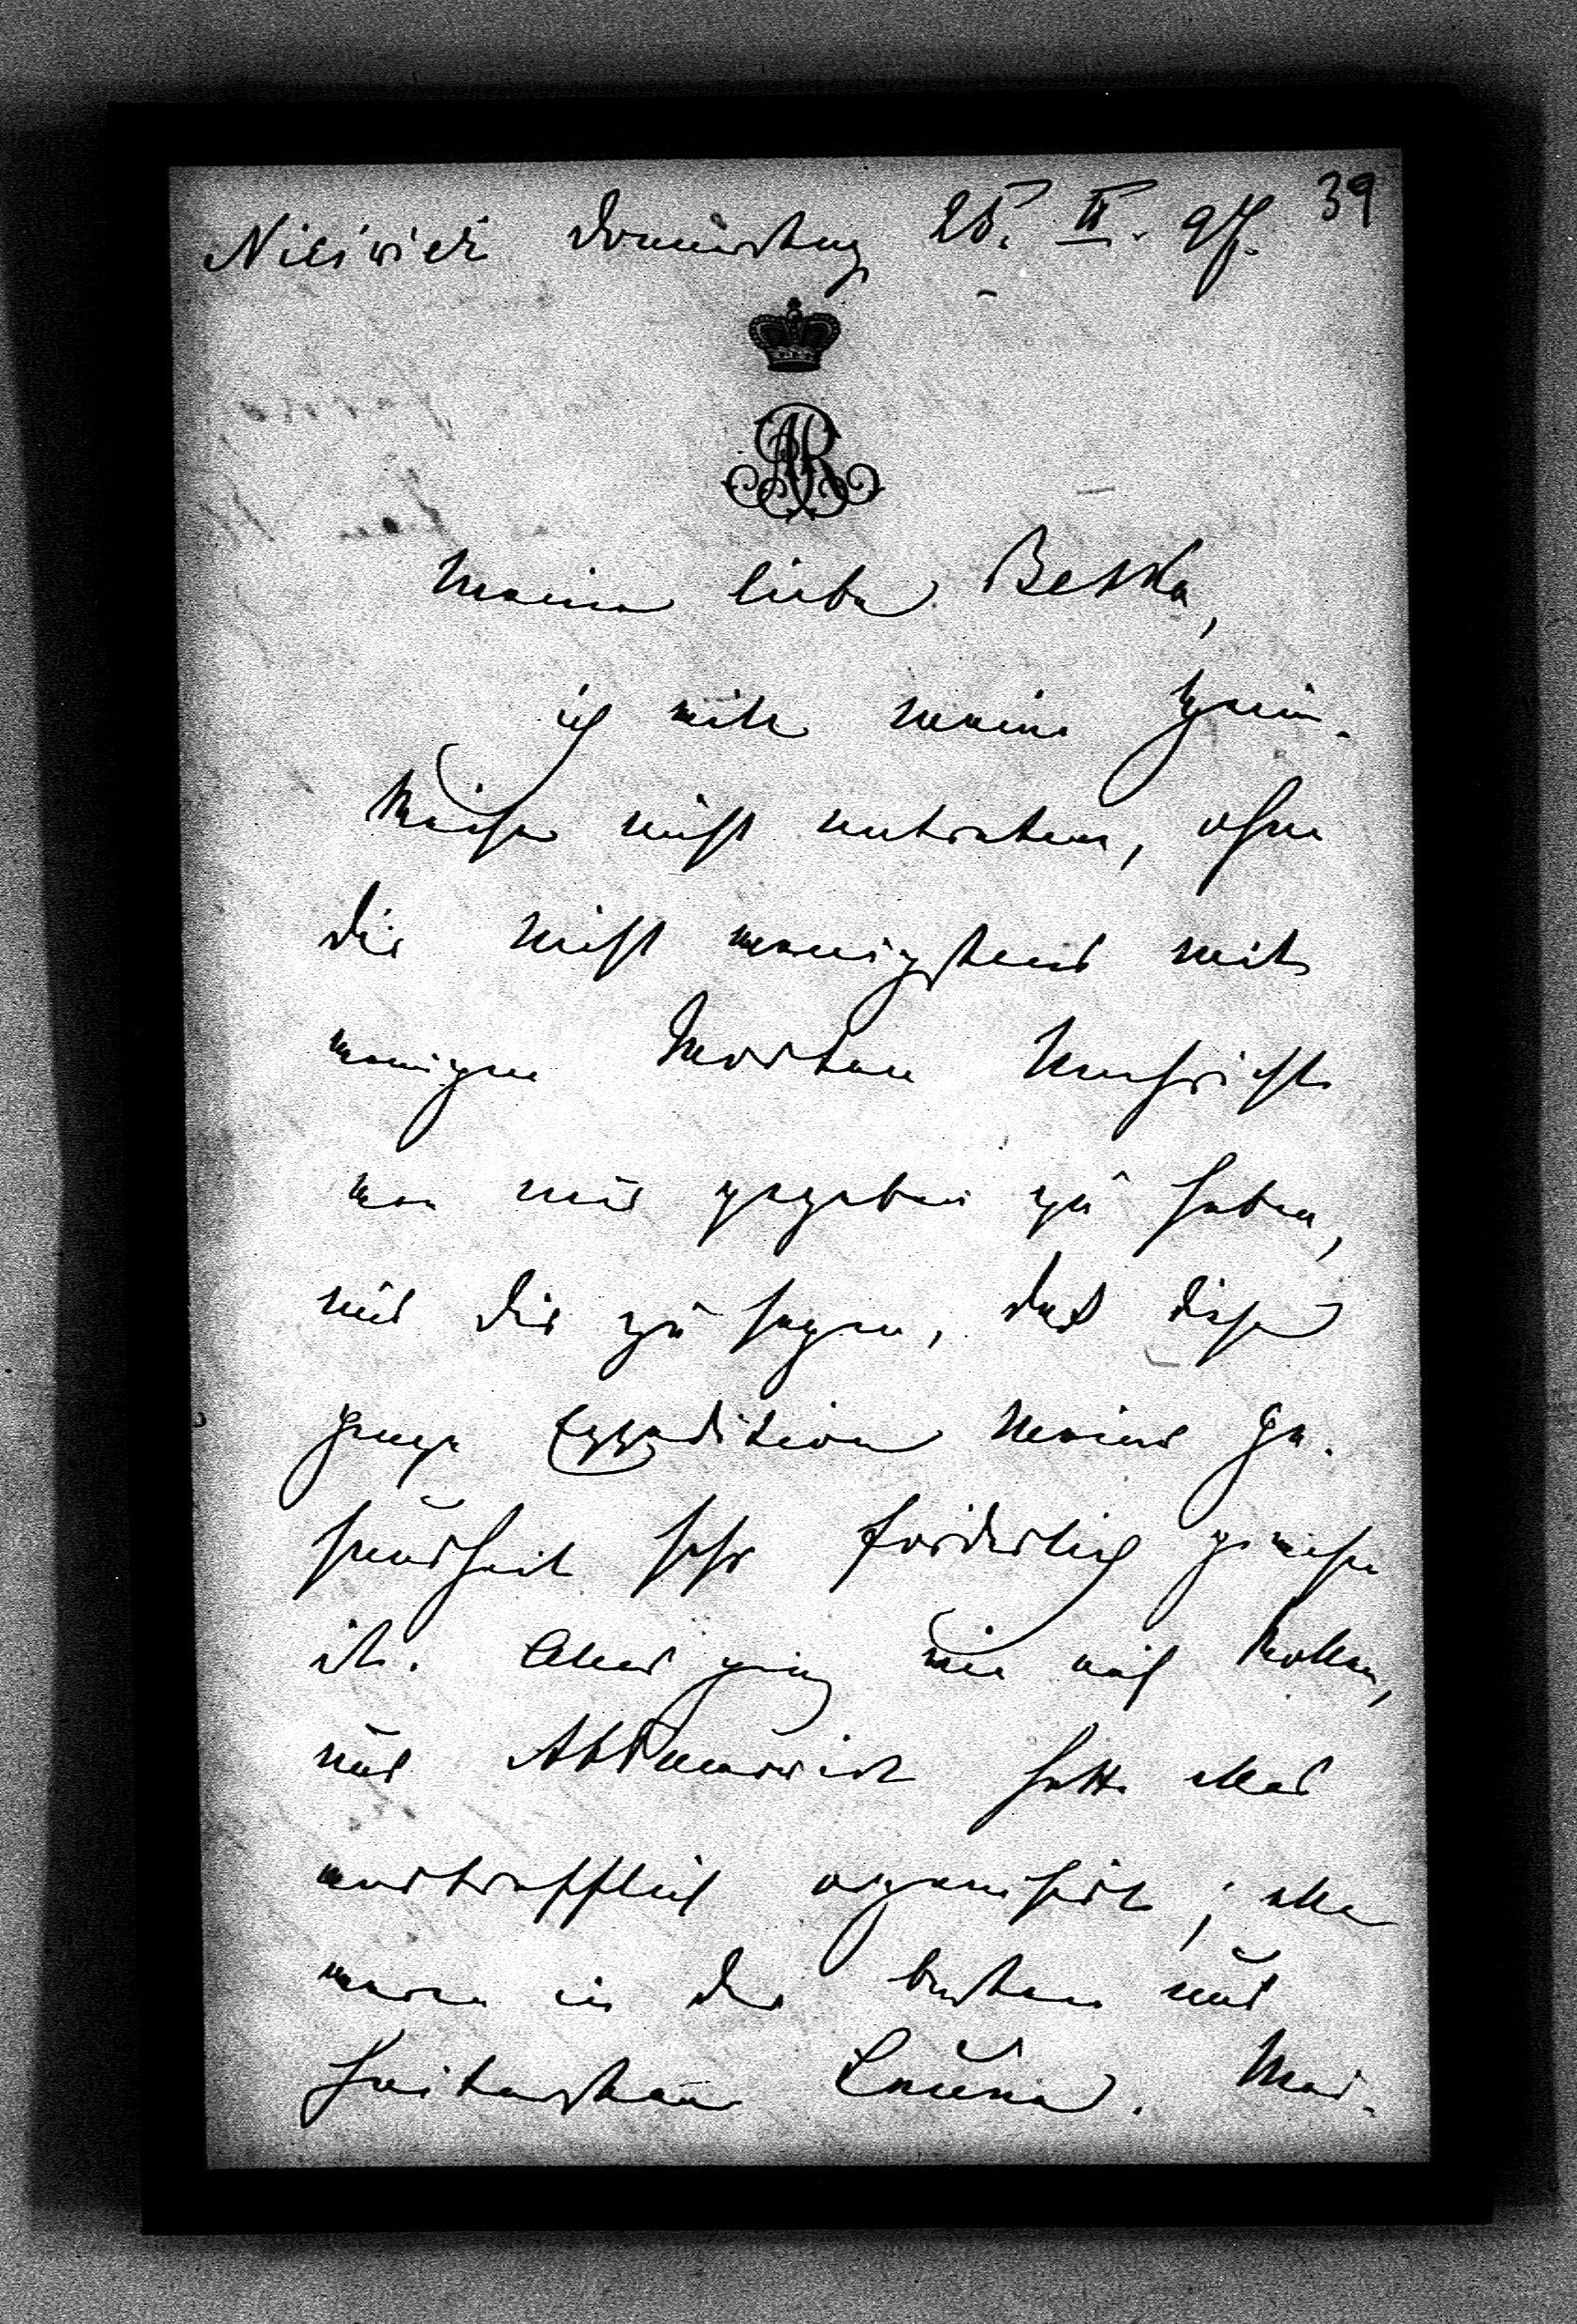 39
Nieśwież Donnerstag 25. II. 97.
AR
Meine liebe Betka,
ich will meine Heim-
Reise nicht antreten, ohne
Dir nicht wenigstens mit
wenigen Worten Nachricht
von mir gegeben zu haben,
und Dir zu sagen, daß diese
ganze Expedition meiner Ge-
sundheit sehr förderlich gewesen
ist. Alles ging wie auf Rollen,
und Abramowicz hatte alles
vortrefflich organisirt; alle
waren in der besten und
heitersten Laune. Mei-